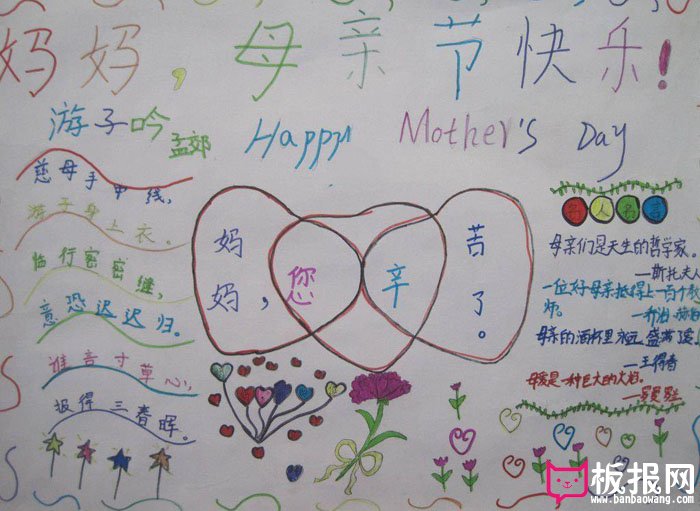 妈妈,母亲节快乐!
游子吟 孟郊
Happy Mother's Day
慈母手中线,
游子身上衣。
临行密密缝,
意恐迟迟归。
谁言寸草心,
报得三春晖。
妈妈,您辛苦了。
名人名言
母亲们是天生的哲学家。
—斯托夫人
一位好母亲抵得上一百个教
师。
母亲的酒杯里永远盛满了爱
—王得春
母爱是一种巨大的火焰。
—罗曼
板报网
www.banbaowang.com